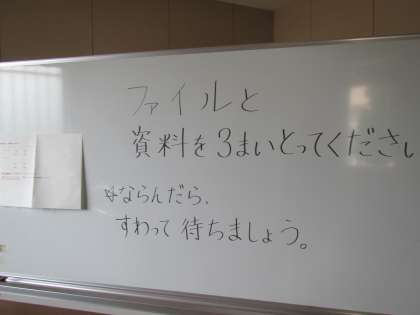 ファイルと
資料を3まいとってください
ならんだら、
すわって待ちましょう。